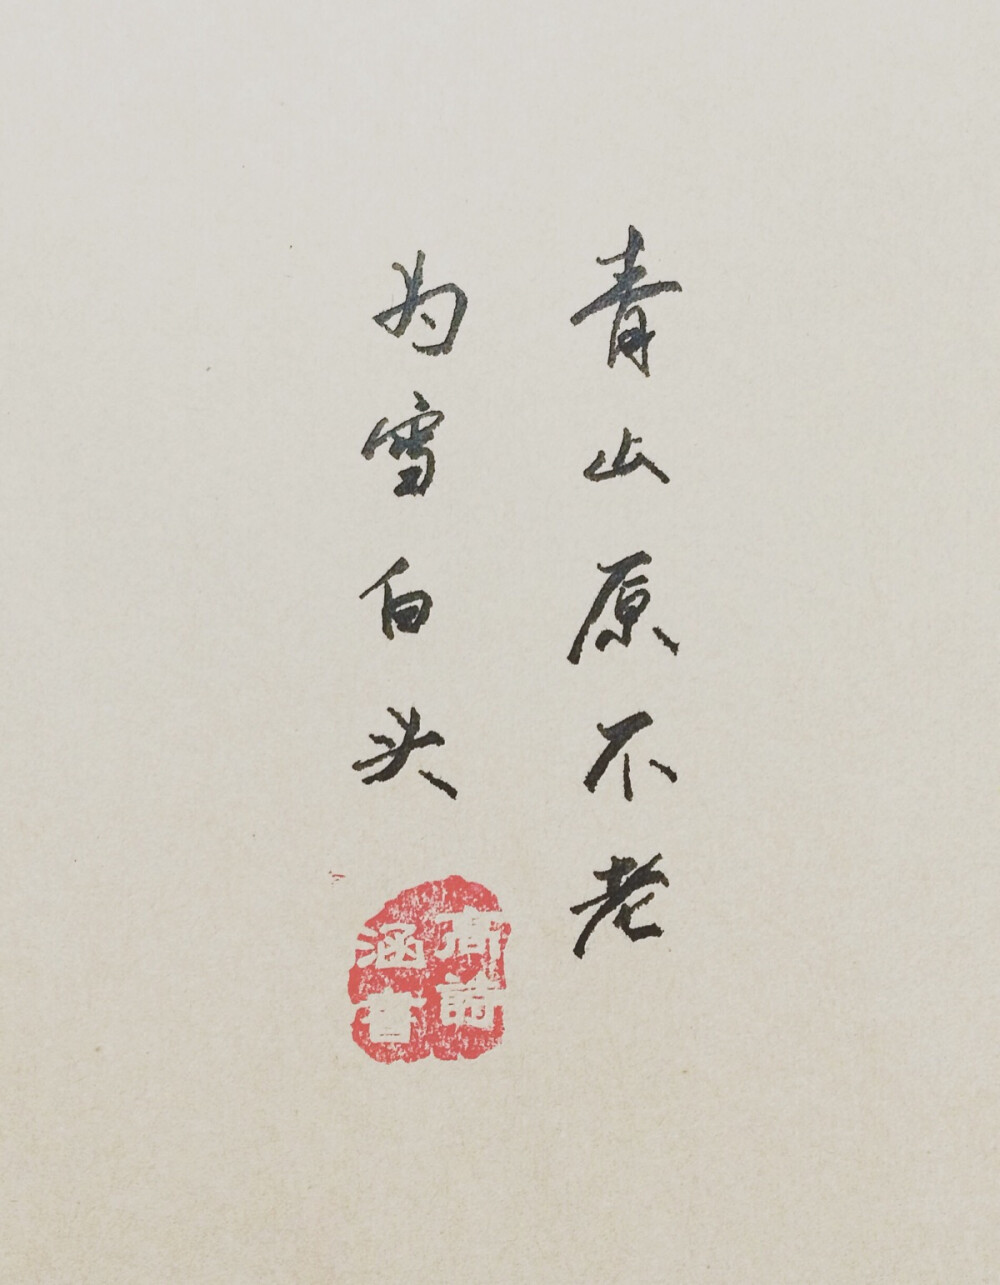 青山原不老
为雪白头
高詩
涵書